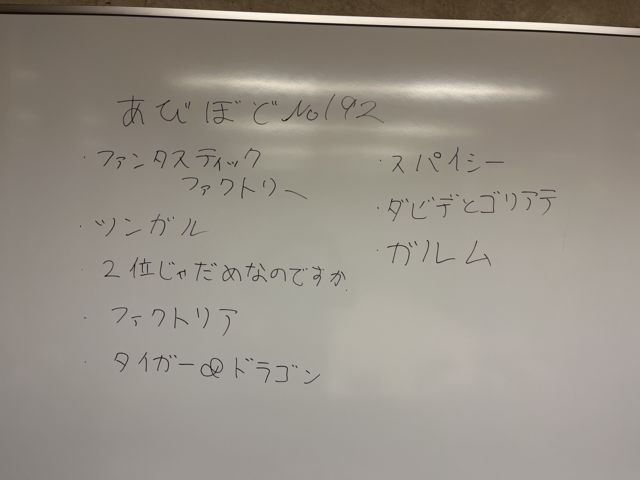 あびぼど No192
・ファンタスティック
ファクトリー
・ツンガル
・2位じゃだめなのですか.
・ファクトリア
・タイガー&ドラゴン
・スパイシー
・ダビデとゴリアテ
・ガルム